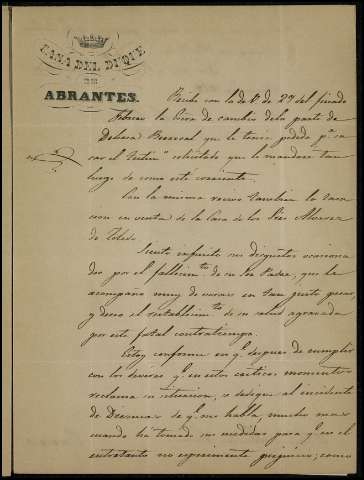 CASA DEL DUQUE
DE
ABRANTES.
Recibi con la de V. de 27 del pasado
Febrero la letra de cambio de la parte de
Dehesa Berrocal que le tenia pedido pª sa-
car el solicitado que le mandare tan
luego se como este corriente.
Con la misma recivo tambien la tasa-
cion en venta de la Casa de los Sres Alvarez
de Toledo
Siento infinito su disgusto ocasiona-
do por el fallecimto de su Sor Padre, que le
acompaño muy de veras en tan justo pesar,
y deseo el restablecimto de su salud agravada
por este fatal contratiempo.
Estoy conforme en qe despues de cumplir
con los deveres qe en estos criticos momentos
reclama su situacion, se dedique al incidente
de de qe me habla, mucho mas
cuando ha tomado sus medidas para qe en el
entretanto no esperimente perjuicio; como